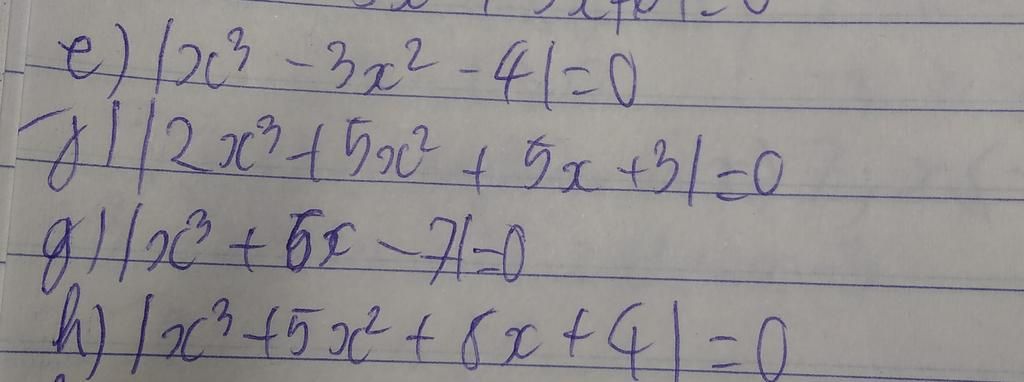 e) |x³ - 3x² - 4| = 0
f) |2x³ + 5x² + 5x + 3| = 0
g) |x³ + 6x - 7| = 0
h) |x³ + 5x² + 8x + 4| = 0